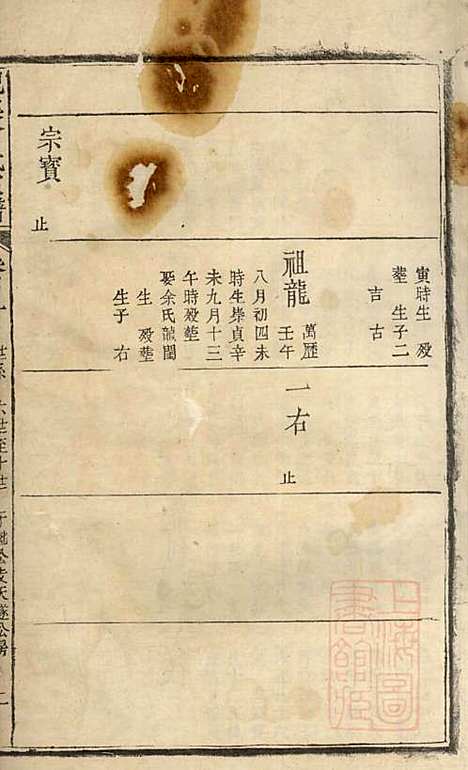 寅時生 歿
塟 生子二
吉 古
祖龍
萬歷
壬午
八月初四未
時生崇貞辛
未九月十三
午時歿塟
娶余氏
生 歿塟
生子 右
一右
止
宗寳
止
世系 六世至十世
上海圖
書館藏